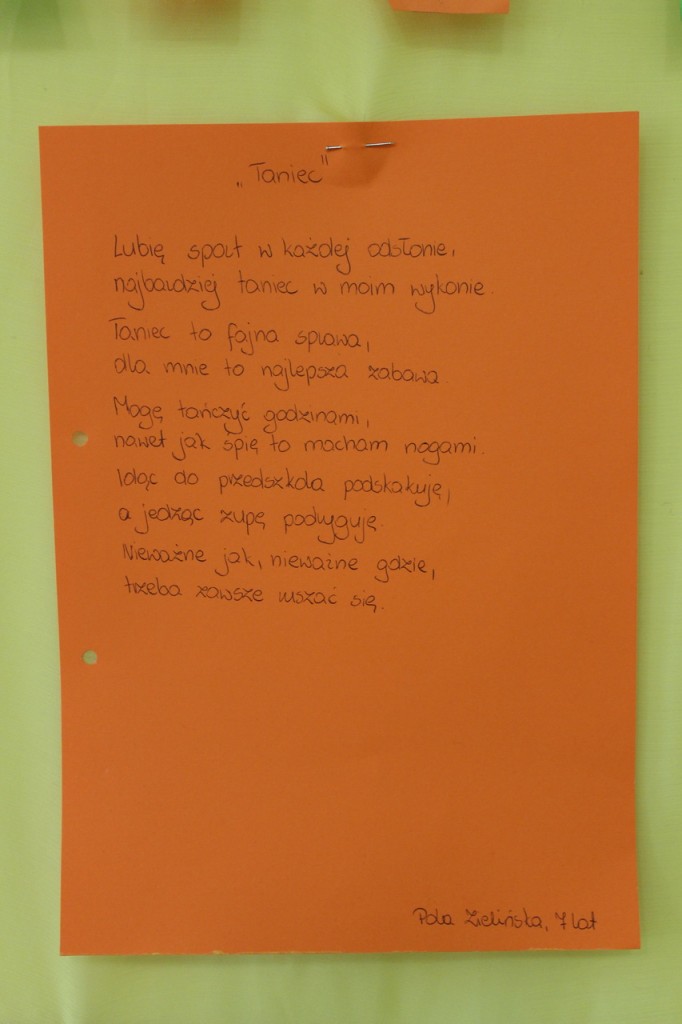 „Taniec"
Lubię sport w każdej odsłonie,
najbardziej taniec w moim wykonie.
Taniec to fajna sprawa,
dla mnie to najlepsza zabawa.
Mogę tańczyć godzinami,
nawet jak śpię to macham nogami.
Idąc do przedszkola podskakuję,
a jedząc zupę podryguję.
Nieważne jak, nieważne gdzie,
trzeba zawsze ruszać się.
Pola Zielińska, 7 lat